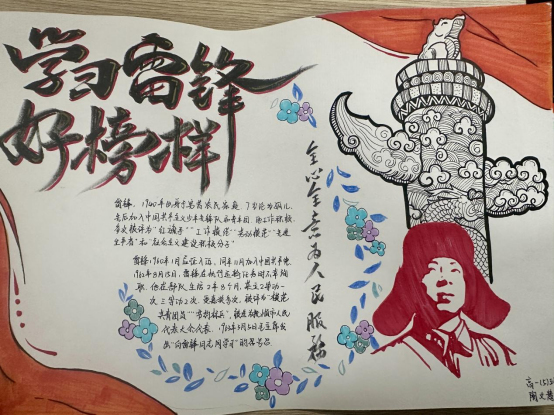 学习雷锋
好榜样
雷锋，1940年出生于
名后加入中国共产主义少年先锋队
多次被评为"红旗手""工作模范""劳动模范""先进
生产者"和"社会主义建设积极分子"
雷锋1960年1月应征入伍，同年11月加入中国共产党。
1962年8月15日，雷锋在执行运输任务时不幸殉
职，他在部队生活2年8个月，荣立二等功一
次三等功2次，受嘉奖多次，被评为"模范
共青团员""节约标兵"，被选为抚顺市人民
代表大会代表。1963年3月5日毛主席发
出"向雷锋同志学习"的号召
全心全意为人民服务